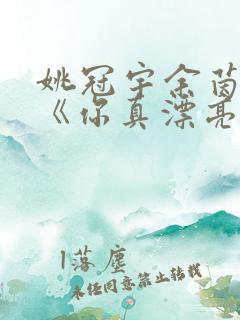 姚冠宇余茵
《你真漂亮
1落尘
未经同意禁止转载